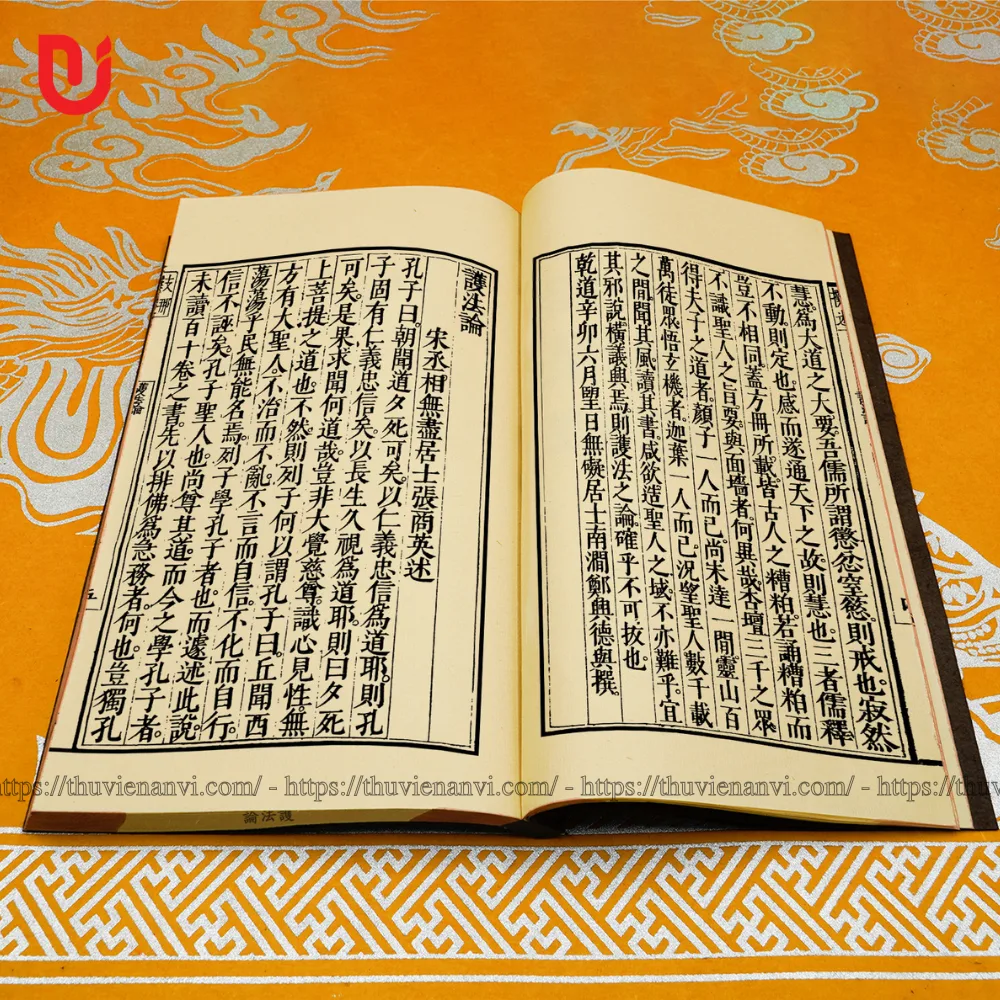 慧。爲大道之大要。吾儒所謂懲忿窒慾。則戒也。寂然
不動。則定也。感而遂通天下之故。則慧也。三者儒釋
豈不相同。蓋方冊所載。皆古人之糟粕。若誦糟粕而
不識聖人之旨要。與面墻者。何異哉。杏壇三千之眾。
得夫子之道者。顏子一人而已。尚未達一間。靈山百
萬徒眾。悟玄機者。迦葉一人而已。況望聖人數千載
之間。聞其風。讀其書。咸欲造聖人之域。不亦難乎。宜
其邪說橫議興焉。則護法之論。確乎不可拔也。
乾道辛卯六月望日無礙居士南澗鄭興德與撰。
護法論
宋丞相無盡居士張商英述
孔子曰。朝聞道夕死可矣。以仁義忠信爲道耶。則孔
子固有仁義忠信矣。以長生久視爲道耶。則曰夕死
可矣。是果求聞何道哉。豈非大覺慈尊。識心見性。無
上菩提之道也。不然。則列子何以謂孔子曰。丘聞西
方有大聖人。不治而不亂。不言而自信。不化而自行。
蕩蕩乎民無能名焉。列子學孔子者也。而遽述此說。
信不誣矣。孔子聖人也。尚尊其道。而今之學孔子者。
未讀百十卷之書。先以排佛爲急務者。何也。豈獨孔
護法論
https://thuvienanvi.com/ - https://thuvienanvi.com/ - https://thuvienanvi.com/ - https://thuvienanvi.com/